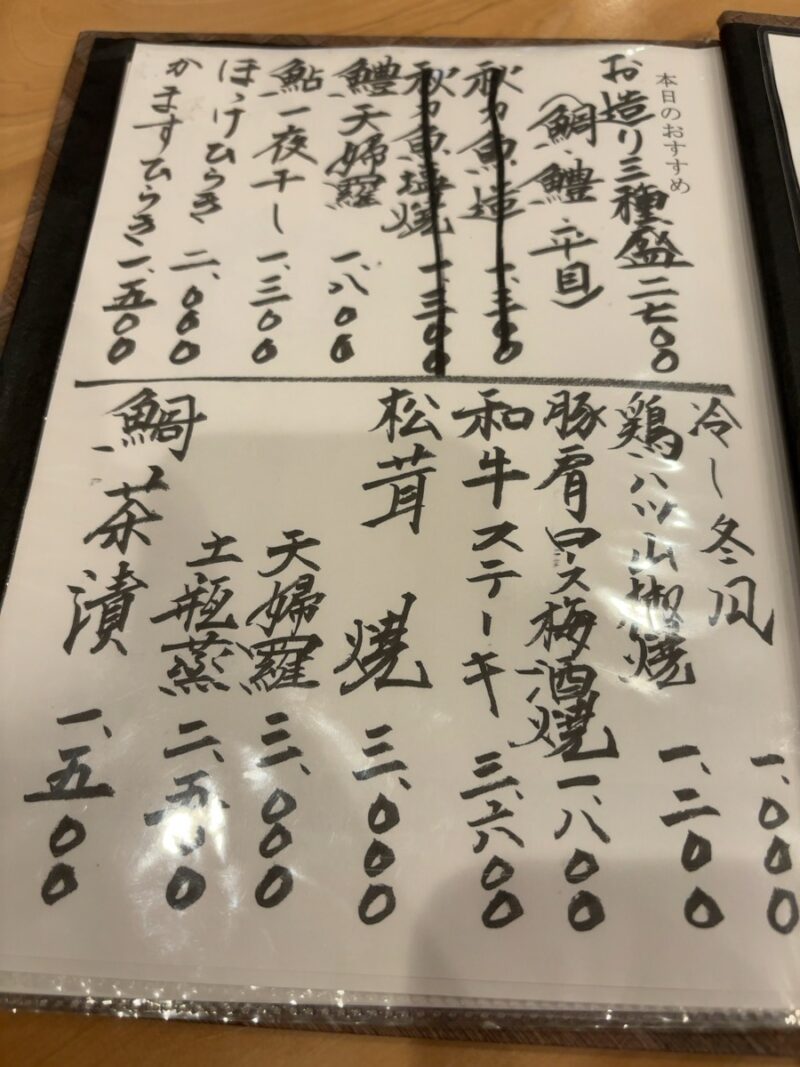 本日のおすすめ
お造り三種盛 二七〇〇
(鯛、鱧、平目)
秋刀魚造 一、三〇〇
秋刀魚塩焼 一、三〇〇
鱧天婦羅 一、八〇〇
鮎一夜干し 一、三〇〇
ほっけひらき 二、〇〇〇
かますひらき 一、五〇〇
冷し冬瓜 一、〇〇〇
鶏ハツ山椒焼 一、二〇〇
豚肩ロース梅酒焼 一、八〇〇
和牛ステーキ 三、六〇〇
松茸 焼 三、〇〇〇
天婦羅 三、〇〇〇
土瓶蒸 二、五〇〇
鯛茶漬 一、五〇〇